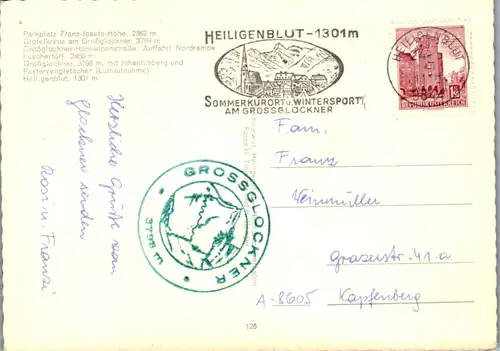 Parkplatz Franz-Josefs-Höhe, 2362 m
Gipfelkreuz am Großglockner, 3798 m
Großglockner-Hochalpenstraße, Auffahrt Nordrampe
Fuschertörl, 2455 m
Großglockner, 3798 m, mit Johannisberg und
Pasterzengletscher (Luftaufnahme)
Heiligenblut, 1301 m
HEILIGENBLUT-1301m
SOMMERKURORT U. WINTERSPORT
AM GROSSGLOCKNER
HEILIGENBLUT
REPUBLIK ÖSTERREICH
Herzliche Grüße vom
Glockner senden
Rosi u. Franzi
GROSSGLOCKNER
3798 m
Fam.
Franz
Weinmüller
Grazerstr. 41a
A-8605 Kapfenberg
128